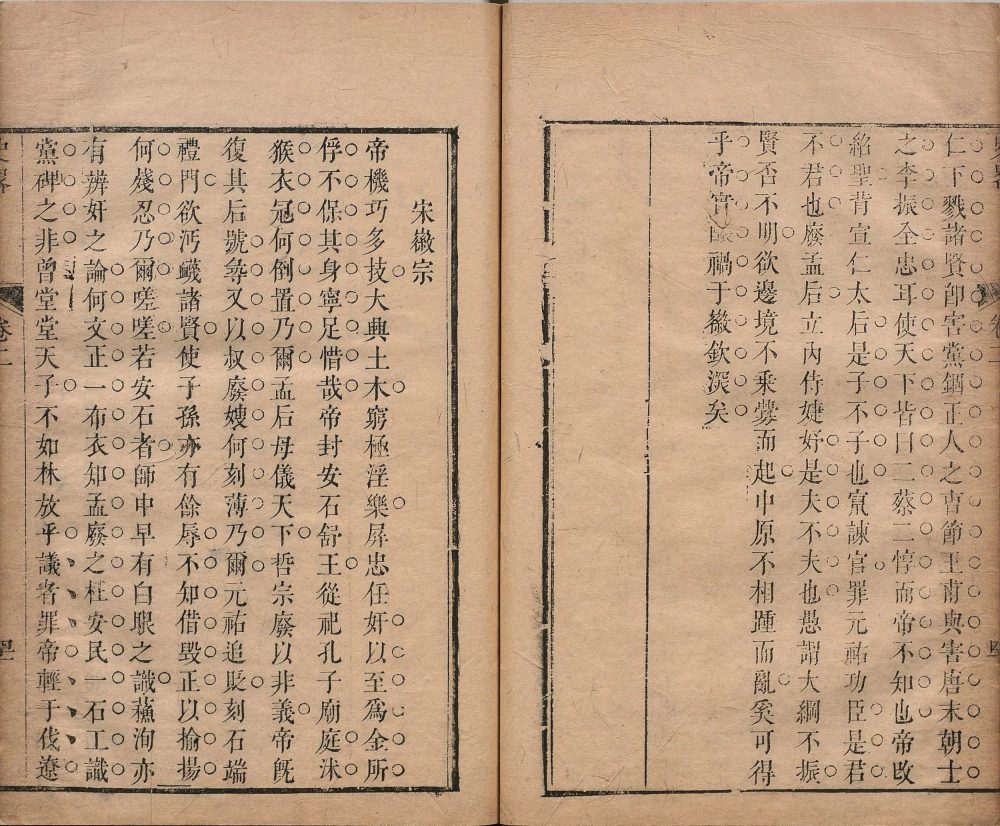 仁下戮諸賢卽害黨錮正人之曹節王甫與害唐末朝士
之李振全忠耳使天下皆曰二蔡二惇而帝不知也帝改
紹聖背宣仁太后是子不子也竄諫官罪元祐功臣是君
不君也廢孟后立內侍婕妤是夫不夫也愚謂大綱不振
賢否不明欲邊境不乘釁而起中原不相踵而亂奚可得
乎帝實釀禍于徽欽深矣
宋徽宗
帝機巧多技大興土木窮極淫樂屏忠任奸以至爲金所
俘不保其身寧足惜哉帝封安石舒王從祀孔子廟庭沐
猴衣冠何倒置乃爾孟后母儀天下哲宗廢以非義帝旣
復其后號尋又以叔廢嫂何刻薄乃爾元祐追貶刻石端
禮門欲沔衊諸賢使子孫亦有餘辱不知借毀正以揄揚
何殘忍乃爾嗟嗟若安石者師中早有白眼之識蘇洵亦
有辨奸之論何文正一布衣知孟廢之枉安民一石工識
黨碑之非曾堂堂天子不如林放乎議者罪帝輕于伐遼
卷二